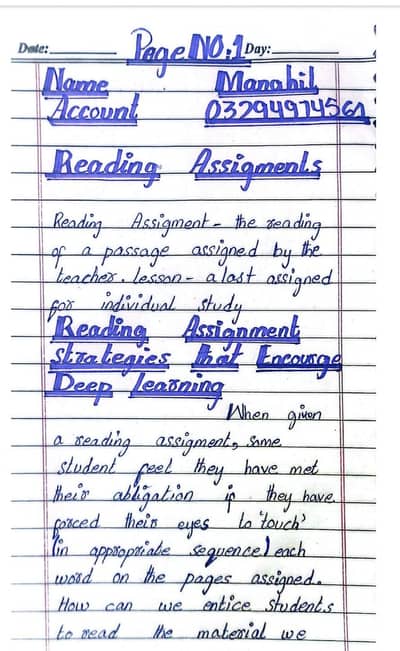 Date: Page NO:1 Day:
Name Manahil
Account 03294974561
Reading Assigments
Reading Assigment - the reading
of a passage assigned by the
teacher. lesson - a last assigned
for individual study
Reading Assignment
strategies that Encourge
Deep learning
When given
a reading assigment, some
student feel they have met
their abligation if they have
forced their eyes to 'touch'
(in appropriate sequence) each
word on the pages assigned.
How can we entice students
to read the material we